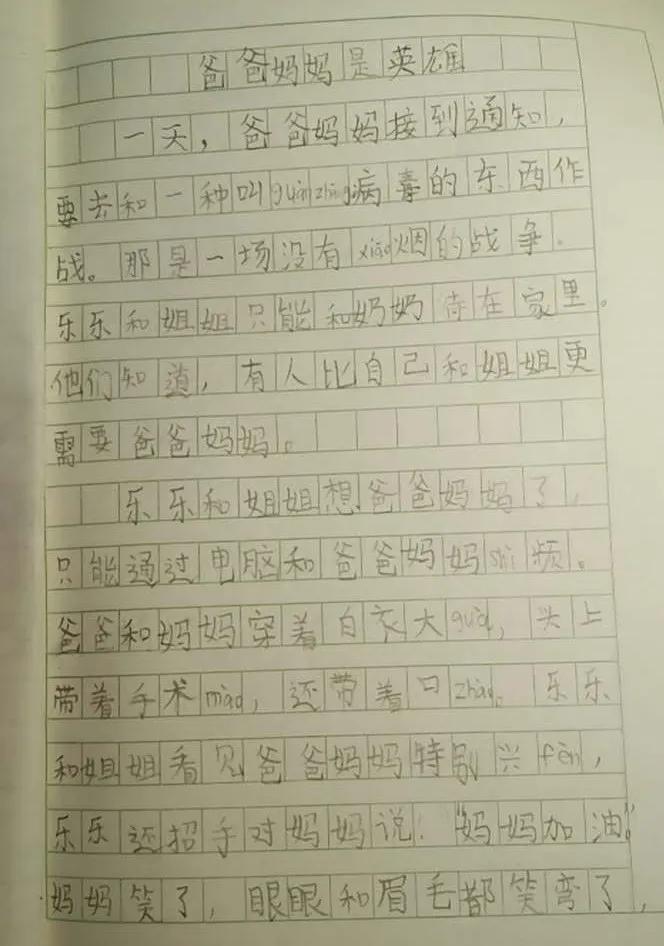 爸爸妈妈是英雄
一天，爸爸妈妈接到通知，
要去和一种叫guānzhuàng病毒的东西作
战。那是一场没有xiāo烟的战争。
乐乐和姐姐只能和奶奶待在家里。
他们知道，有人比自己和姐姐更
需要爸爸妈妈。
乐乐和姐姐想爸爸妈妈了，
只能通过电脑和爸爸妈妈shì频。
爸爸和妈妈穿着白衣大guà，头上
带着手术mào，还带着口zhào。乐乐
和姐姐看见爸爸妈妈特别兴fèn，
乐乐还招手对妈妈说：“妈妈加油”
妈妈笑了，眼眼和眉毛都笑弯了，